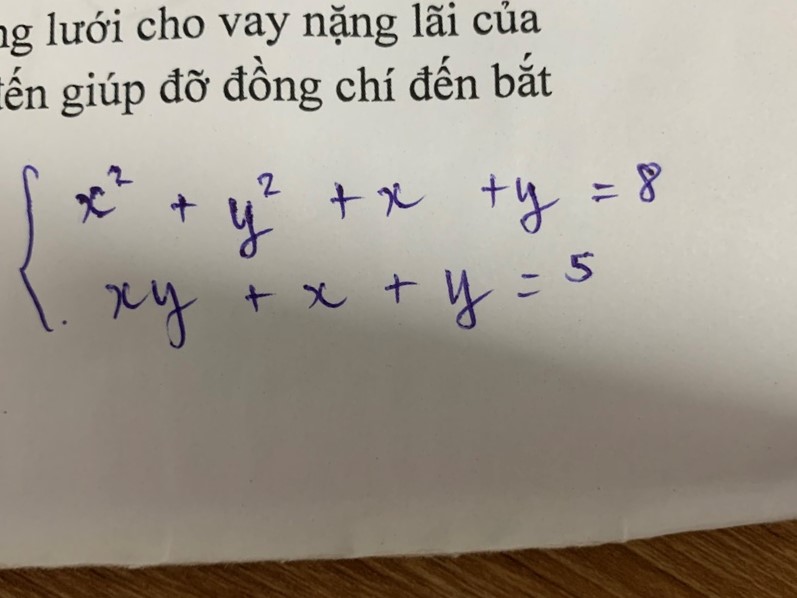 ng lưới cho vay nặng lãi của
đến giúp đỡ đồng chí đến bắt
x² + y² + x + y = 8
xy + x + y = 5